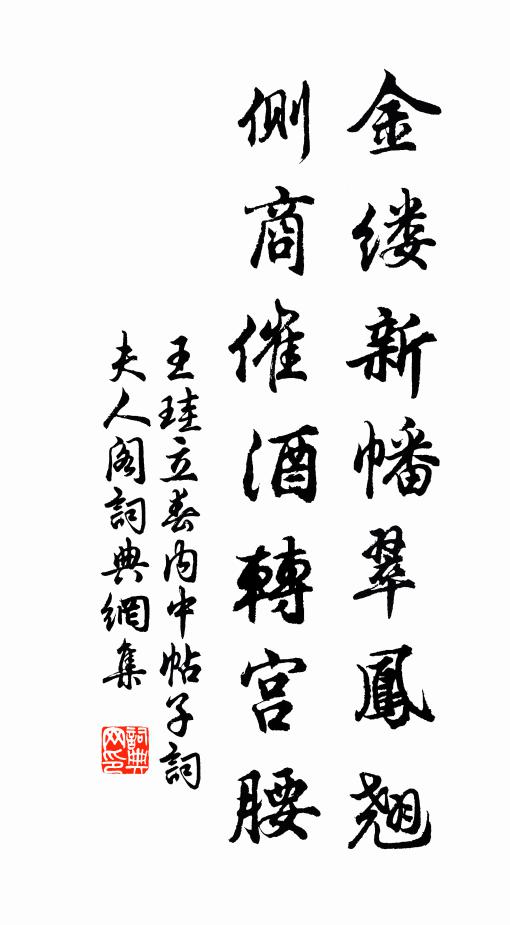 金缕新幡翠鳳翹
側商催酒轉宫腰
王珪立春内中帖子詞
夫人阁詞典網集
詞典
网印